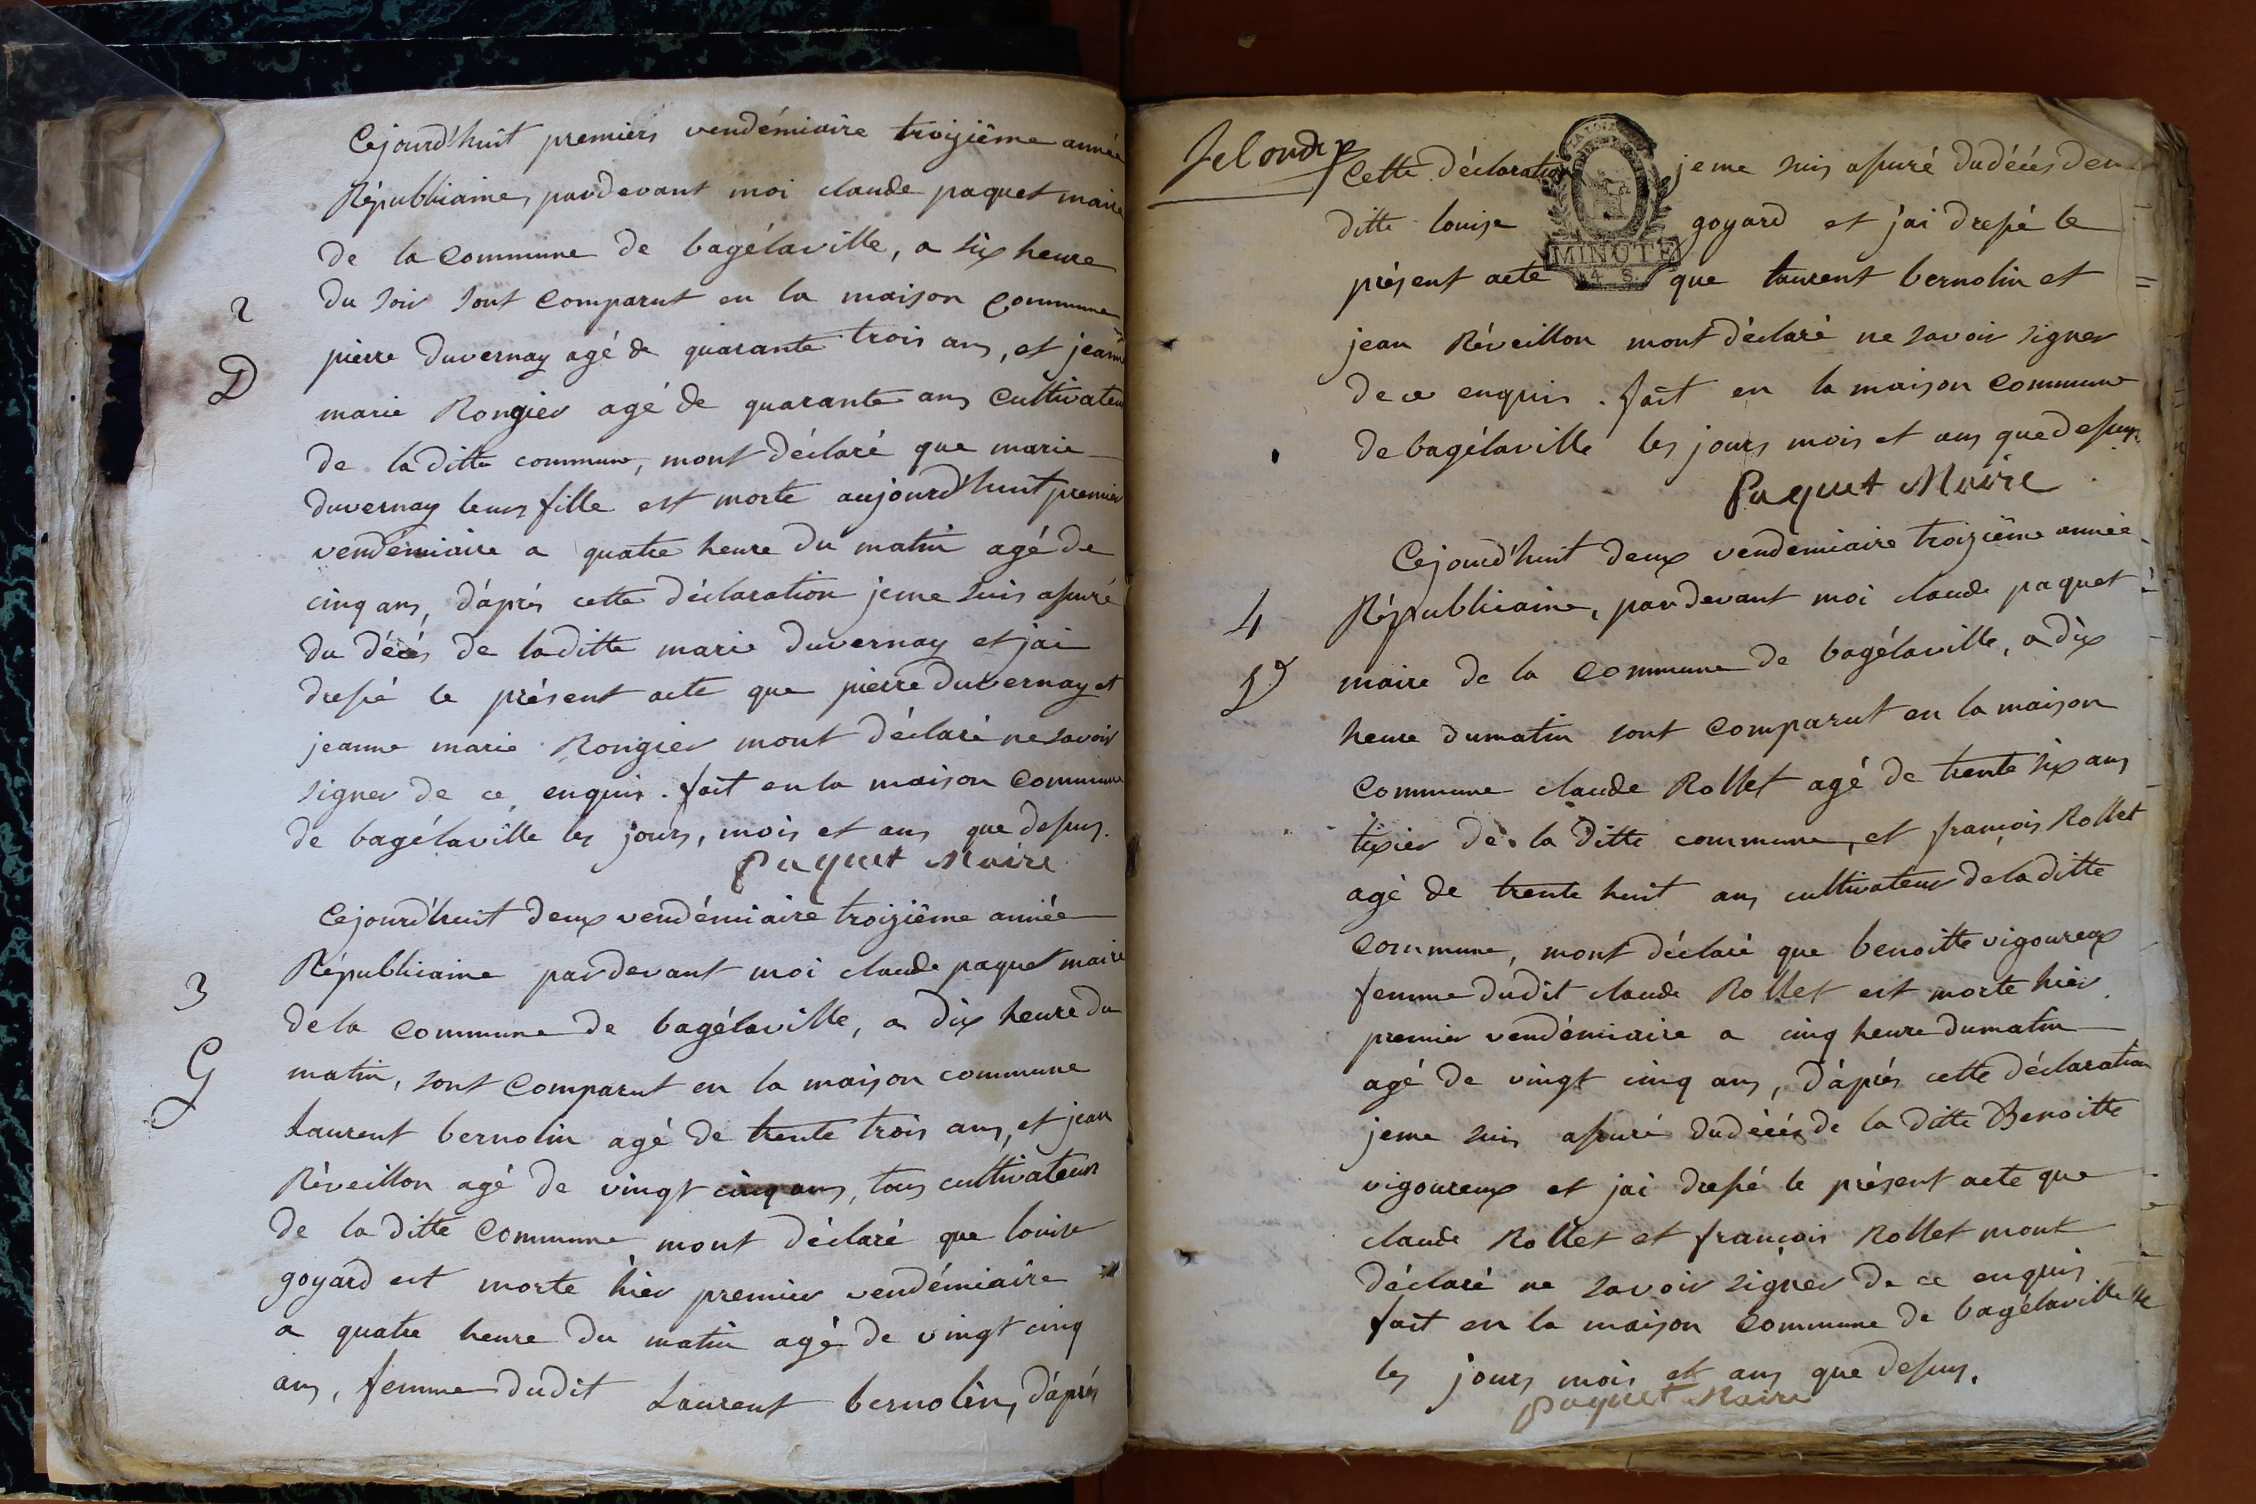 Cejourd'huit premiers vendémiaire troizième année
Républiaine, pardevant moi claude paquet maire
de la commune de bagélaville, a six heure
2
du soir sont comparut en la maison commune
D
pierre duvernay agé de quarante trois ans, et jeanne
marie Rongier agé de quarante ans cultivateur
de laditte commune, mont déclaré que marie
duvernay leurs fille est morte aujourd'huit premier
vendémiaire a quatre heure du matin agé de
cinq ans, d'aprés cette déclaration jeme suis assuré
du décés de laditte marie duvernay et jai
dressé le présent acte que pierre duvernay et
jeanne marie Rongier mont déclaré ne savoir
signer de ce enquis. fait en la maison commune
de bagélaville les jours, mois et ans que dessus.
Paquet Maire
Cejourd'huit deux vendémiaire troizième année
3
Républiaine pardevant moi claude paquet maire
de la commune de bagélaville, a dix heure du
G
matin, sont comparut en la maison commune
Laurent bernolin agé de trente trois ans, et jean
Réveillon agé de vingt cinq ans, tous cultivateur
de la ditte commune mont déclaré que louise
goyard est morte hier premier vendémiaire
a quatre heure du matin agé de vingt cinq
ans, femme dudit Laurent bernolin, d'aprés
Cette déclaration jeme suis assuré du décés de la
ditte louise goyard et j'ai dressé le
MINUTE
4 S.
présent acte que laurent bernolin et
jean Réveillon mont déclaré ne savoir signer
de ce enquis. fait en la maison commune
de bagélaville les jours mois et ans que dessus.
Paquet Maire
Cejourd'huit deux vendemiaire troizième année
4
Républiaine, pardevant moi claude paquet
V
maire de la commune de bagélaville, a dix
heure dumatin sont comparut en la maison
commune claude Rollet agé de trente six ans
tixier de la ditte commune, et françois Rollet
agé de trente huit ans cultivateur de la ditte
commune, mont déclaré que benoitte vigoureux
femme dudit claude Rollet est morte hier
premier vendémiaire a cinq heure dumatin
agé de vingt cinq ans, d'aprés cette déclaration
jeme suis assuré du décés de la ditte Benoitte
vigoureux et jai dressé le présent acte que
claude Rollet et françois Rollet mont
déclaré ne savoir signer de ce enquis
fait en la maison commune de bagélaville
les jours mois et ans que dessus.
paquet Maire